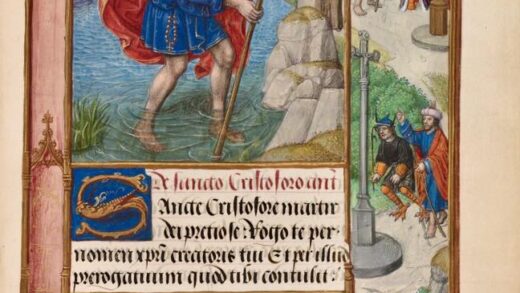 De sancto Cristoforo antt
Sancte Cristofore martir
dei preciose Rogo te per
nomen xpri creatoris tui Et per illud
prerogatiuum quod tibi contulit: